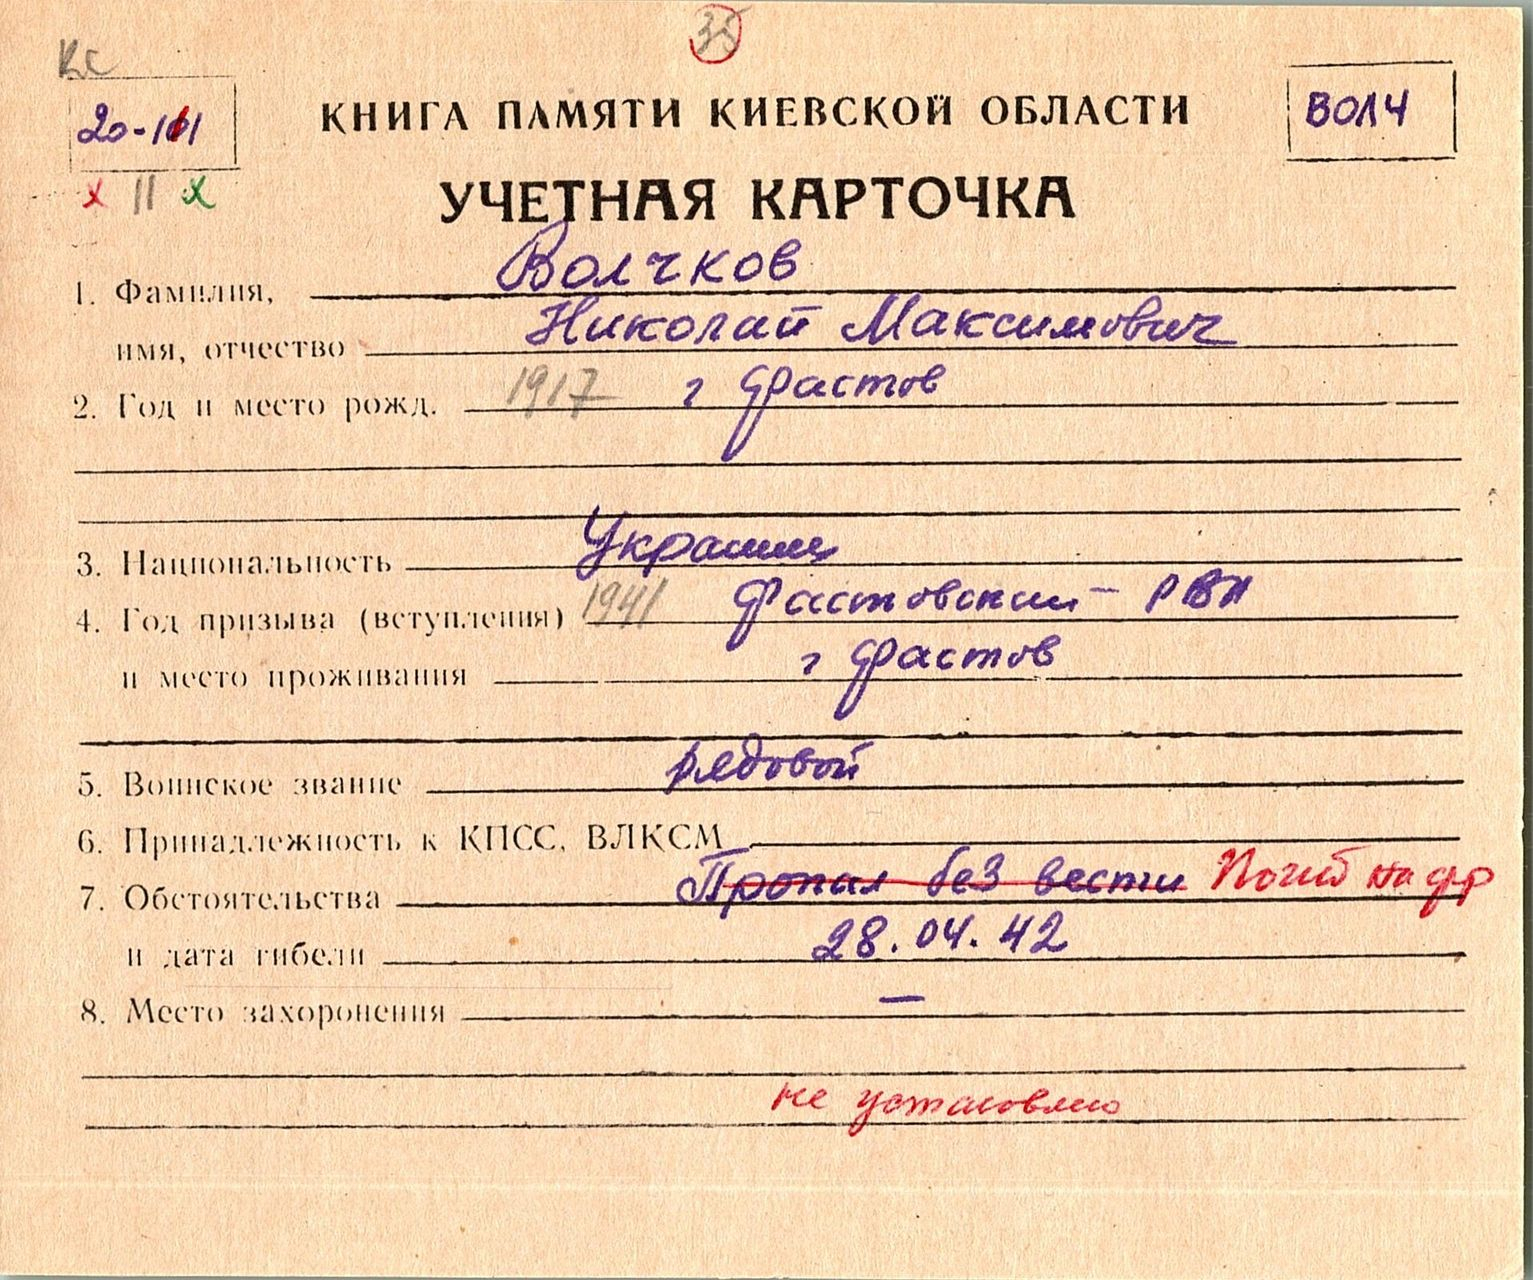 КС
35
20-101
КНИГА ПАМЯТИ КИЕВСКОЙ ОБЛАСТИ
ВОЛЧ
х II х
УЧЕТНАЯ КАРТОЧКА
1. Фамилия, Волчков
имя, отчество Николай Максимович
2. Год и место рожд. 1917 г Фастов
3. Национальность Украинец
4. Год призыва (вступления) 1941 Фастовский - РВК
и место проживания г Фастов
5. Воинское звание рядовой
6. Принадлежность к КПСС, ВЛКСМ
7. Обстоятельства Пропал без вести Погиб на фр
и дата гибели 28.04.42
8. Место захоронения —
не установлено